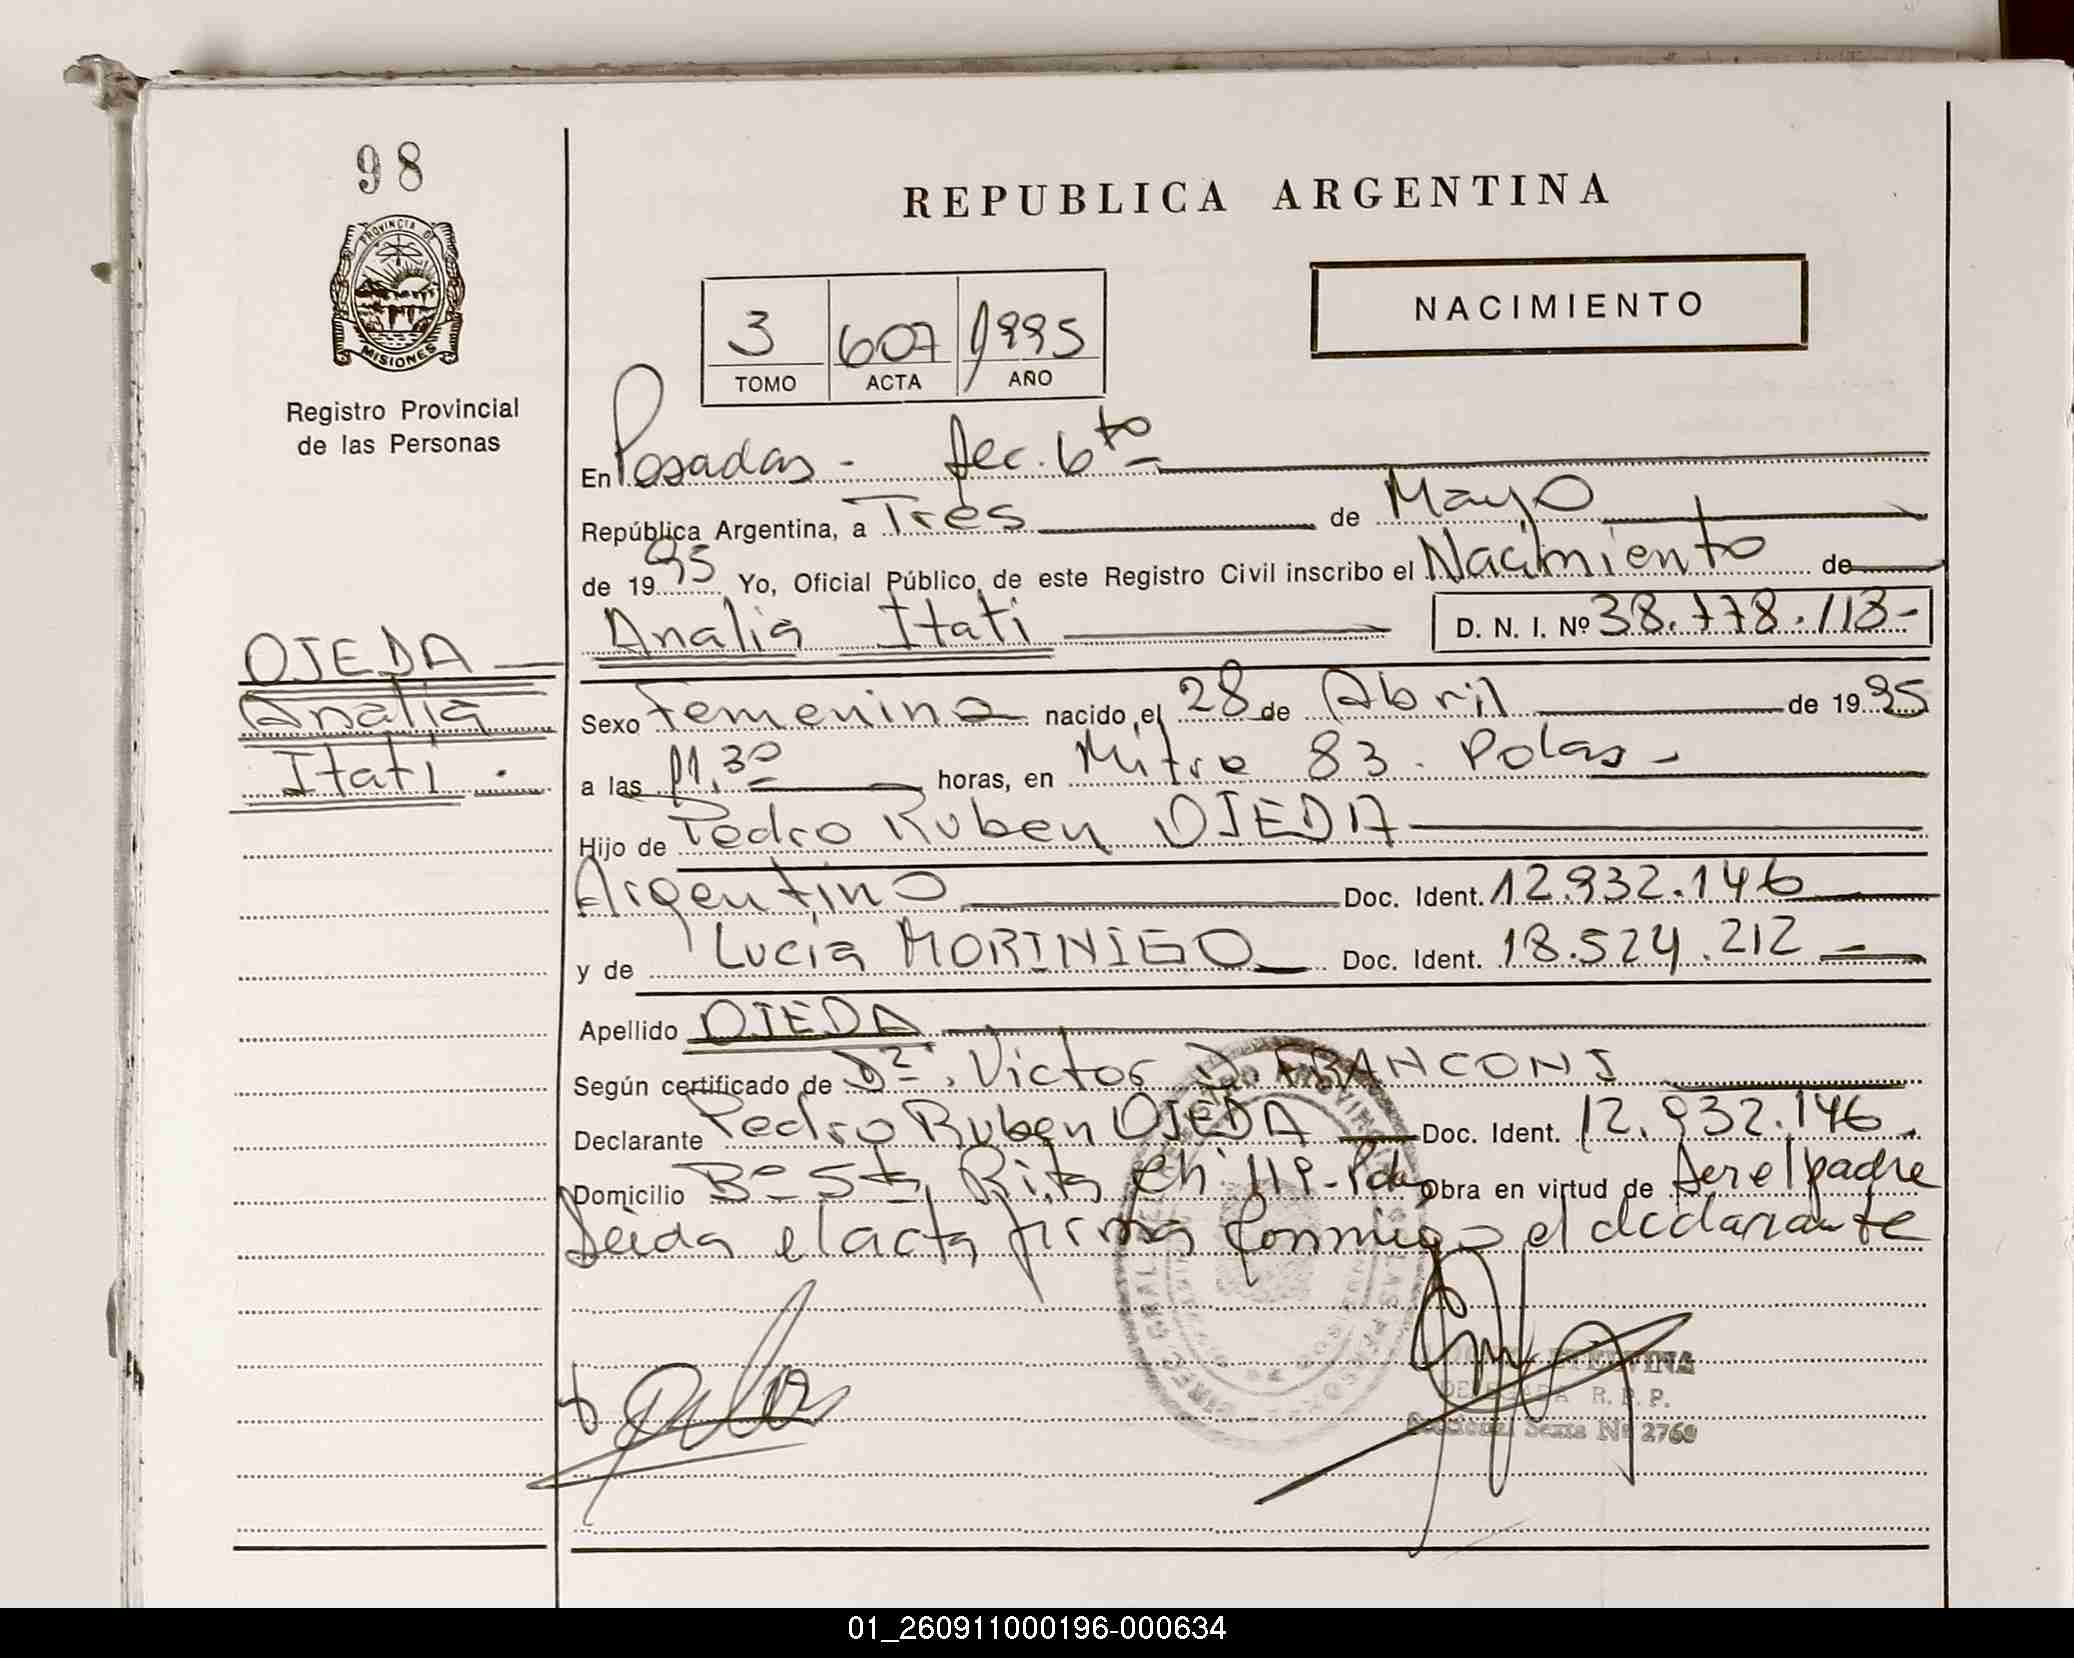 98
PROVINCIA DE
MISIONES
Registro Provincial
de las Personas
REPUBLICA ARGENTINA
NACIMIENTO
3 607 1995
TOMO ACTA AÑO
En Posadas - Sec. 6to
República Argentina, a Tres de Mayo
de 1995 Yo, Oficial Público de este Registro Civil inscribo el Nacimiento de
Analia Itati D. N. I. Nº 38.778.113-
OJEDA
Analia
Itati.
Sexo Femenino nacido el 28 de Abril de 1995
a las 11.30 horas, en Mitre 83. Pdas-
Hijo de Pedro Ruben OJEDA
Argentino Doc. Ident. 12.932.146
y de Lucia MORINIGO Doc. Ident. 18.524.212
Apellido OJEDA
Según certificado de Dr. Victor J. FRANCONI
Declarante Pedro Ruben OJEDA Doc. Ident. 12.932.146
Domicilio Bº Sta Rita Ch 119-Pdas Obra en virtud de ser el padre
Leida el acta firma conmigo el declarante
ETELVINA
DELEGADA R. P. P.
Seccional Sexta Nº 2760
01_260911000196-000634